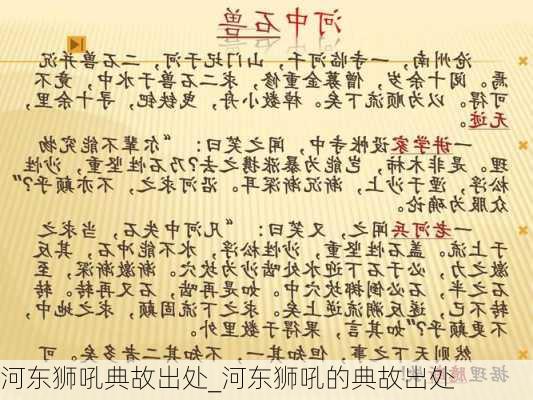 河中石兽
沧州南，一寺临河干，山门圮于河，二石兽并沉
焉。阅十余岁，僧募金重修，求二石兽于水中，竟不
可得。以为顺流下矣。棹数小舟，曳铁钯，寻十余里，
无迹。
一讲学家设帐寺中，闻之笑曰：“尔辈不能究物
理。是非木杮，岂能为暴涨携之去?乃石性坚重，沙性
松浮，湮于沙上，渐沉渐深耳。沿河求之，不亦颠乎?”
众服为确论。
一老河兵闻之，又笑曰：“凡河中失石，当求之
于上流。盖石性坚重，沙性松浮，水不能冲石，其反
激之力，必于石下迎水处啮沙为坎穴。渐激渐深，至
石之半，石必倒掷坎穴中。如是再啮，石又再转。转
转不已，遂反溯流逆上矣。求之下流固颠，求之地中，
不更颠乎?”如其言，果得于数里外。
然则天下之事，但知其一，不知其二者多矣。可
据理臆断
河东狮吼典故出处_河东狮吼的典故出处